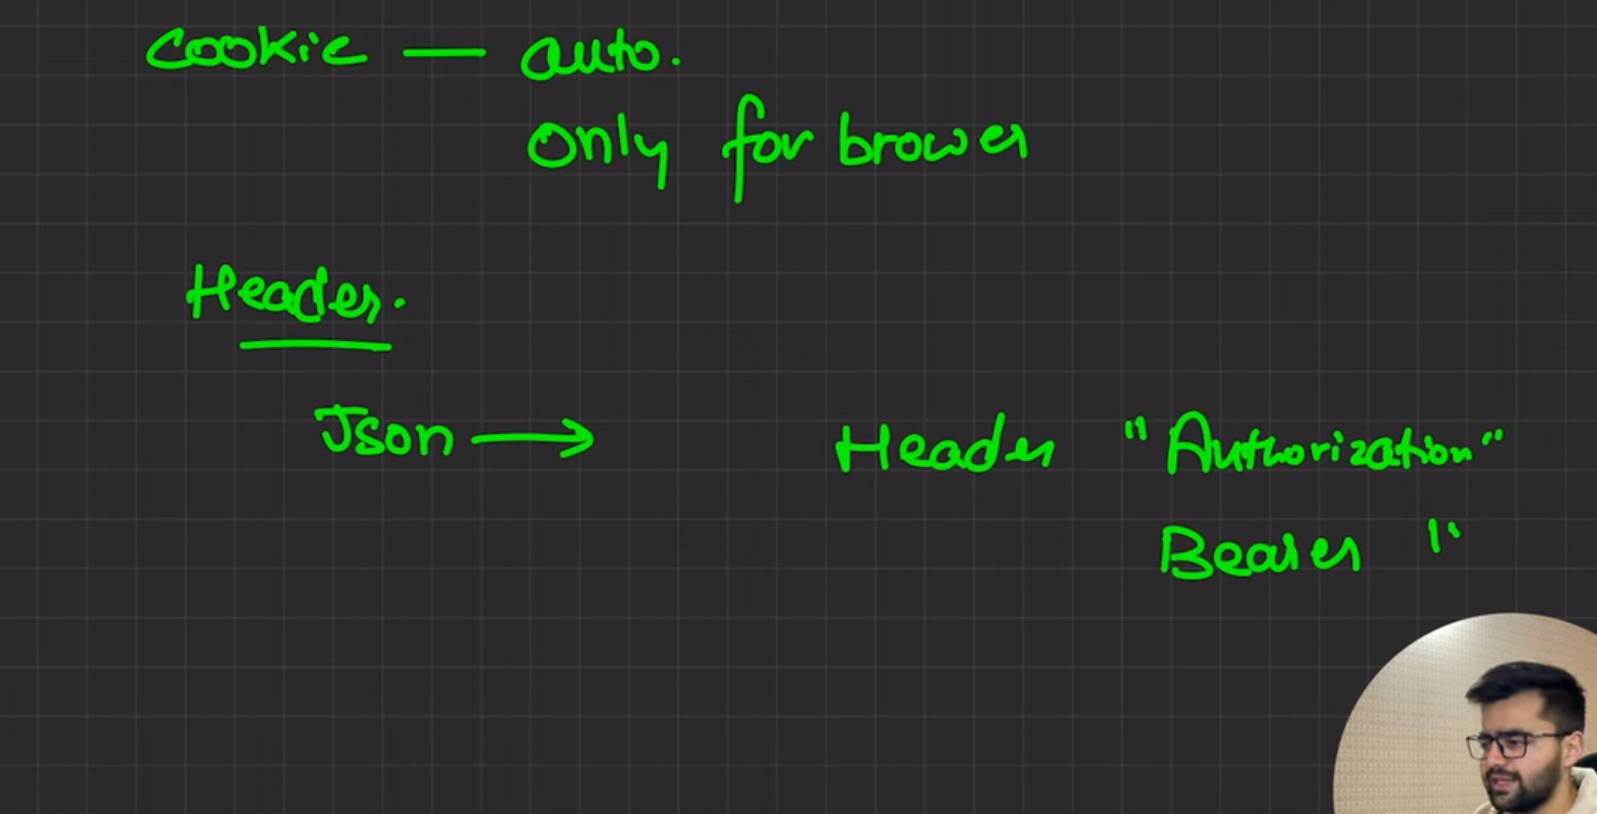 Cookie — auto.
Only for brower
Header.
Json → Header "Authorization"
Bearer "